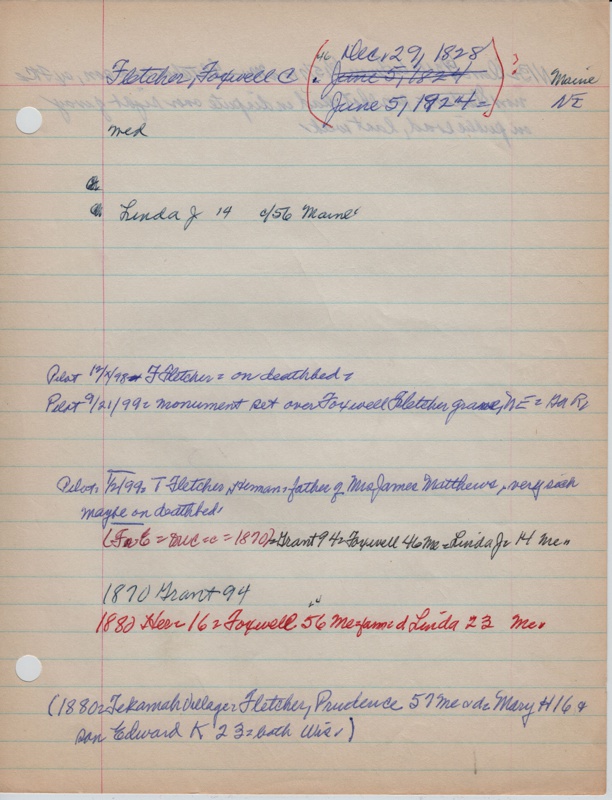 Dec. 29, 1828
Fletcher, Foxwell C. June 5, 1824 ?
June 5, 1924 = Maine
NE
med
Ch.
Ch. Linda J 14 c/56 Maine
Pilot F Fletcher = on deathbed =
Pilot 9/21/99 = monument set over Foxwell Fletcher grave, NE = GAR,
Pilot, 1/2/99, T Fletcher, Herman, father of Mrs James Matthews, very sick
maybe on deathbed
= 1870) = Grant 94 = Foxwell 46 Me = Linda J = 14 Me
1870 Grant 94
1880 Her = 16 = Foxwell 56 Me = d Linda 23 Me
(1880 = Tekamah Village = Fletcher, Prudence 57 Me = da Mary H 16 &
son Edward K 23 = both Wis.)